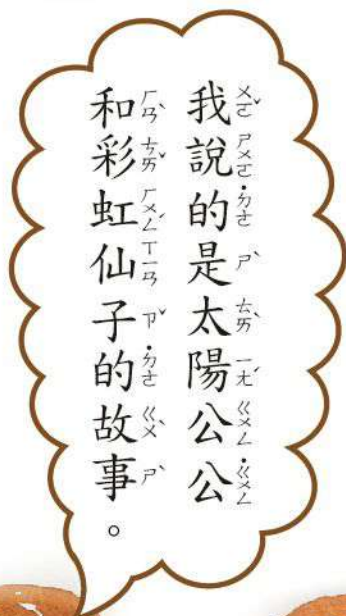 我說的是太陽公公
和彩虹仙子的故事。